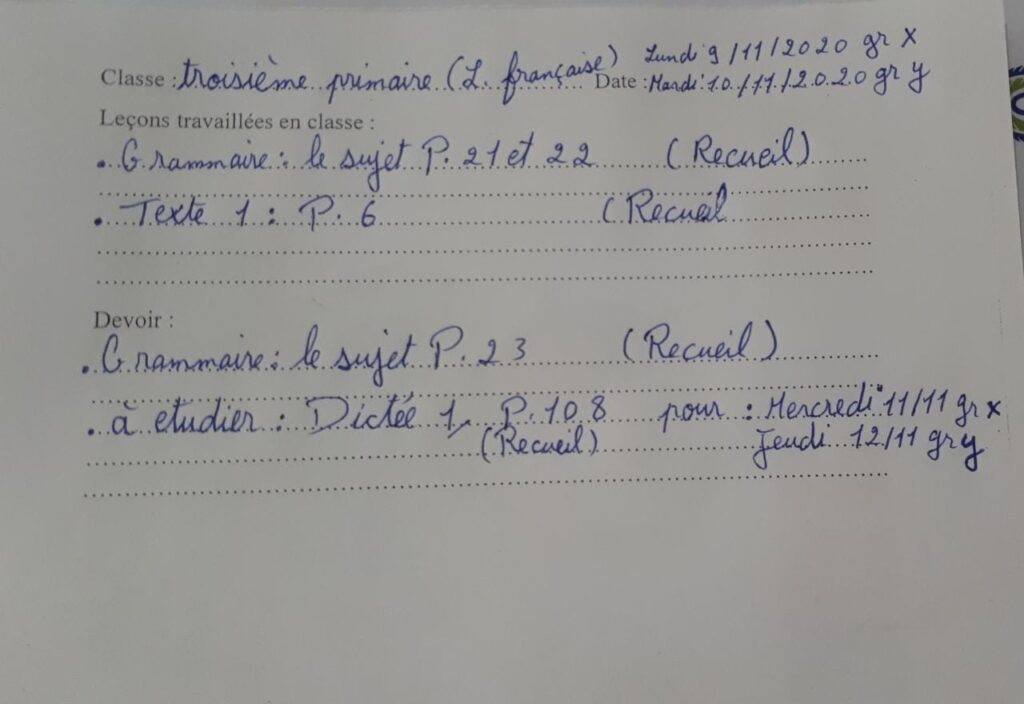 Lundi 9/11/2020 gr x
Classe : troisième primaire (L. française) Date : Mardi 10/11/2020 gr y
Leçons travaillées en classe :
• Grammaire : le sujet P. 21 et 22 (Recueil)
• Texte 1 : P. 6 (Recueil
Devoir :
• Grammaire : le sujet P. 23 (Recueil)
• à etudier : Dictée 1, P. 108 pour : Mercredi 11/11 gr x
(Recueil) Jeudi 12/11 gr y